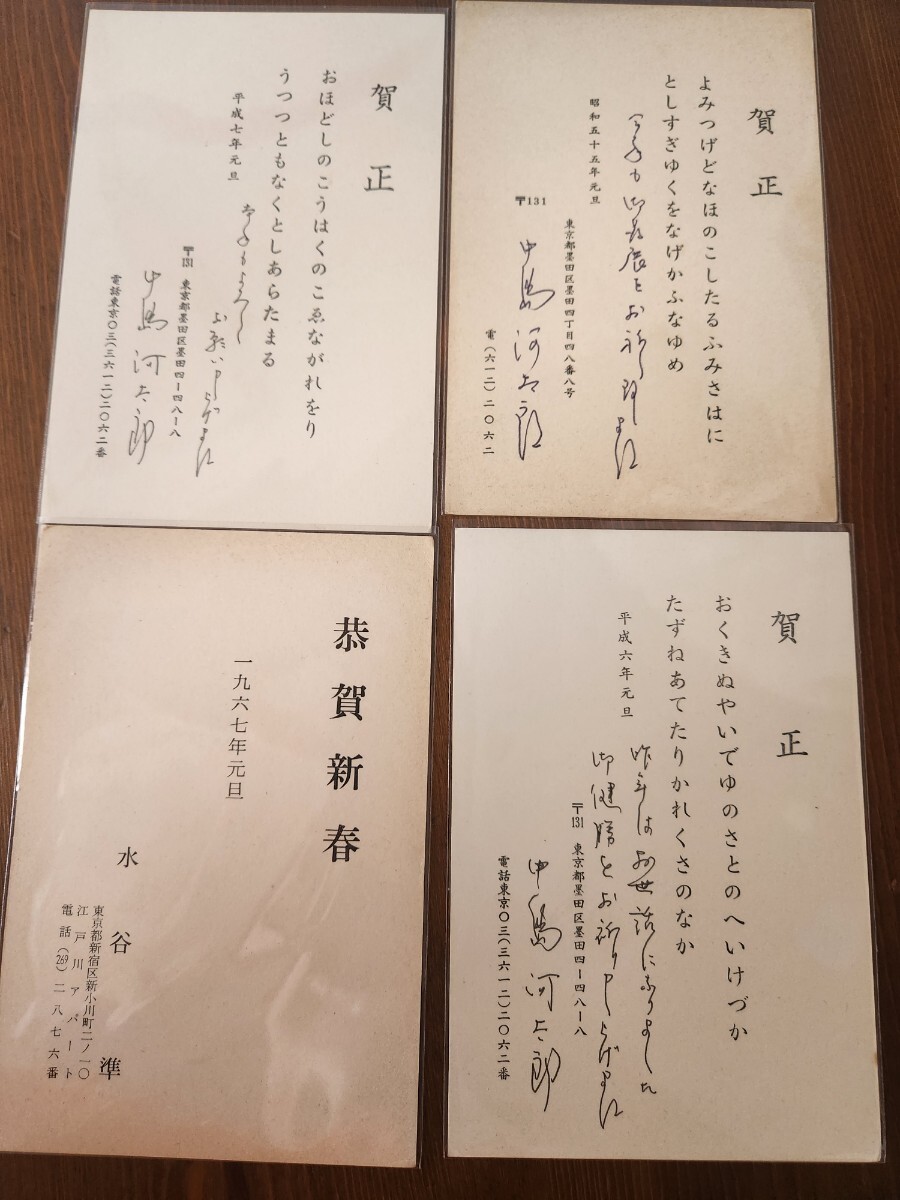 賀正
よみつげどなほのこしたるふみさはに
としすぎゆくをなげかふなゆめ
昭和五十五年元旦
〒131
東京都墨田区墨田四丁目四八番八号
中島河太郎
電(六一二)二〇六二
賀正
おほどしのこうはくのこゑながれをり
うつつともなくとしあらたまる
平成七年元旦
本年もよろしく
お願い申し上げます
〒131 東京都墨田区墨田四ー四八ー八
中島河太郎
電話東京〇三(三六一二)二〇六二番
賀正
おくきぬやいでゆのさとのへいけづか
たずねあてたりかれくさのなか
平成六年元旦
昨年はお世話になりました
御健勝をお祈り申し上げます
〒131 東京都墨田区墨田四ー四八ー八
中島河太郎
電話東京〇三(三六一二)二〇六二番
恭賀新春
一九六七年元旦
水谷準
東京都新宿区新小川町二ノ一〇
江戸川アパート
電話(269)二八七六番